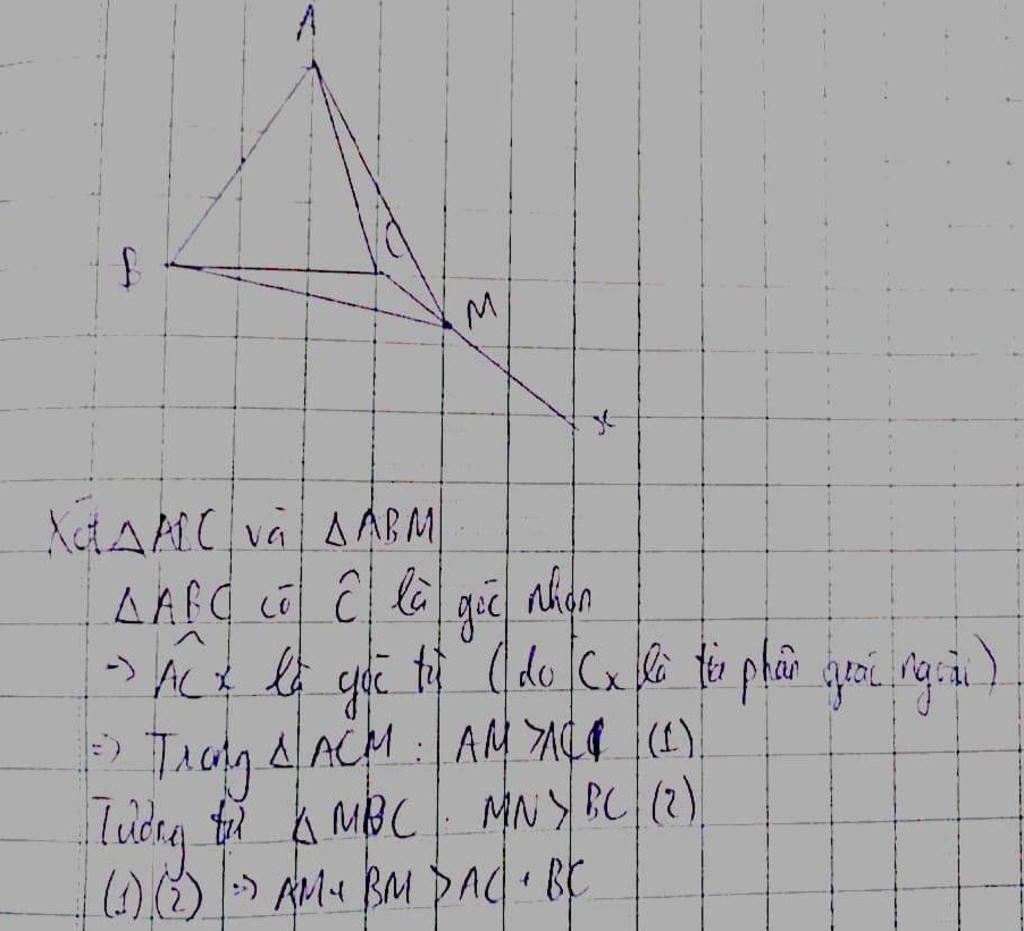 A
B
C
M
x
Xét △ABC và △ABM
△ABC có Ĉ là góc nhọn
-> ACx là góc tù (do Cx là tia phân giác ngoài)
=> Trong △ACM: AM > AC (1)
Tương tự △MBC: MN > BC (2)
(1)(2) => AM + BM > AC + BC